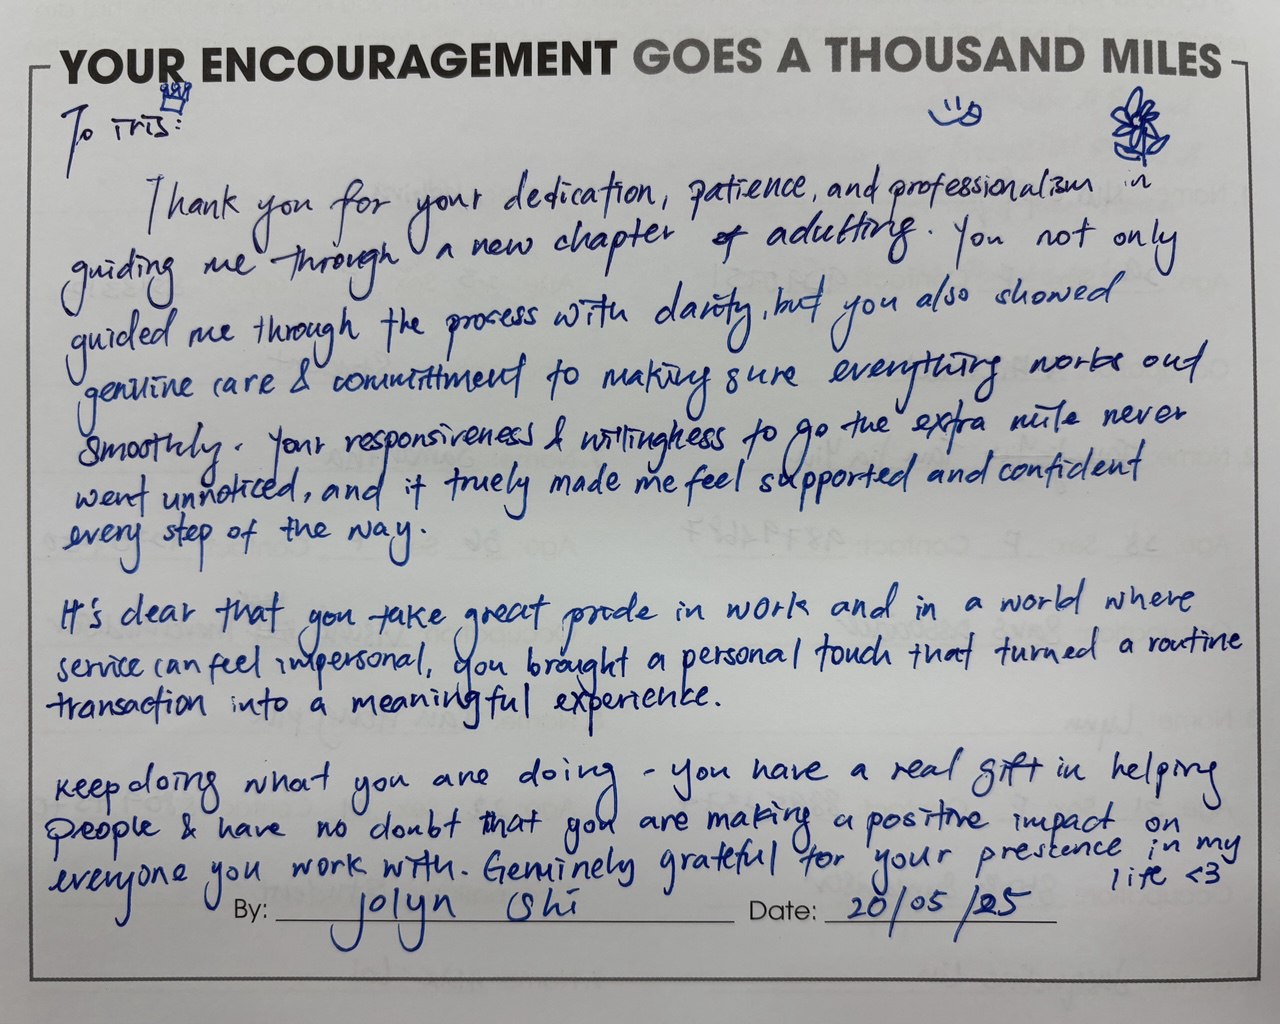 YOUR ENCOURAGEMENT GOES A THOUSAND MILES
To Iris:
Thank you for your dedication, patience, and professionalism in
guiding me through a new chapter of adulting. You not only
guided me through the process with clarity, but you also showed
genuine care & committment to making sure everything works out
smoothly. Your responsiveness & willingness to go the extra mile never
went unnoticed, and it truely made me feel supported and confident
every step of the way.
It's clear that you take great pride in work and in a world where
service can feel impersonal, you brought a personal touch that turned a routine
transaction into a meaningful experience.
Keep doing what you are doing - you have a real gift in helping
people & have no doubt that you are making a positive impact on
everyone you work with. Genuinely grateful for your prescence in my
life <3
By: Jolyn Shi Date: 20/05/25